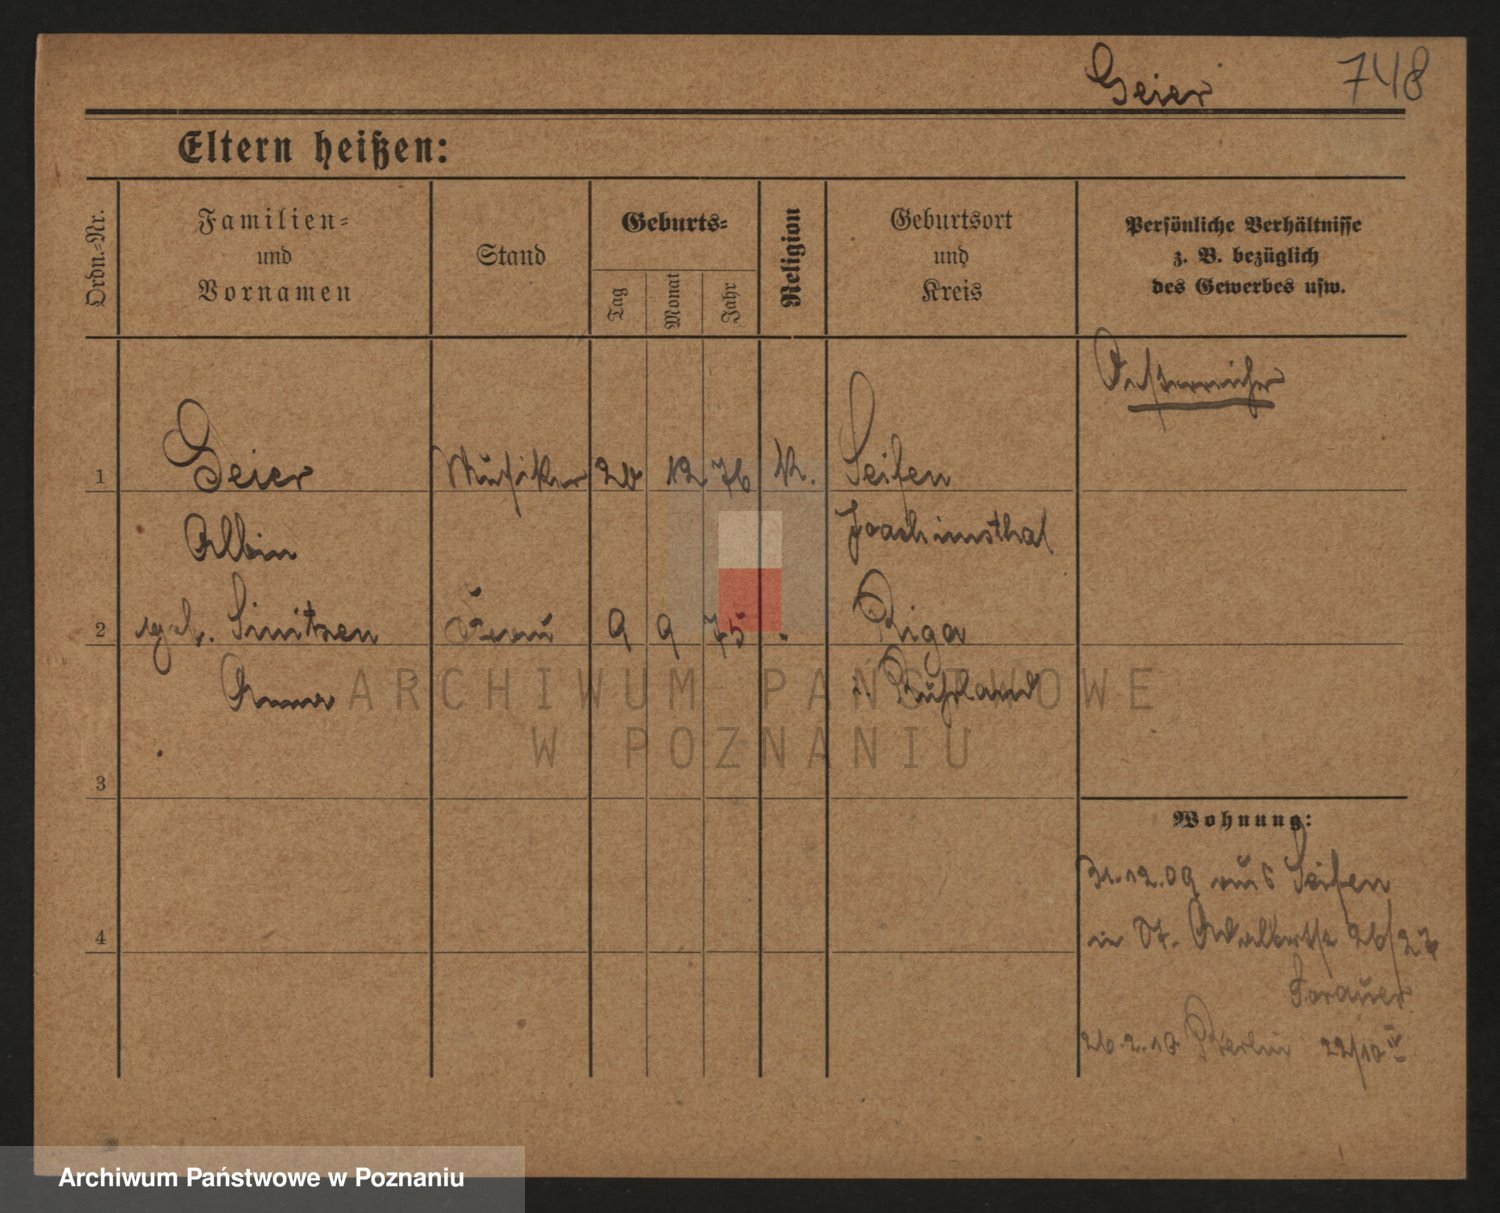 Geier 748
Eltern heißen:
Ordn.-Nr.
Familien-
und
Vornamen
Stand
Geburts-
Tag
Monat
Jahr
Religion
Geburtsort
und
Kreis
Persönliche Verhältnisse
z. B. bezüglich
des Gewerbes usw.
Oesterreicher
1 Geier Musiker 20 12 76 K. Seifen
Albin Joachimsthal
2 geb. Sinitzen Frau 9 9 75 Riga
Anna i. Rußland
ARCHIWUM PAŃSTWOWE
W POZNANIU
3
Wohnung:
31.12.09 aus Seifen
4
in St. Adalbertstr 26/27
26.2.10 Berlin 22/10
Archiwum Państwowe w Poznaniu